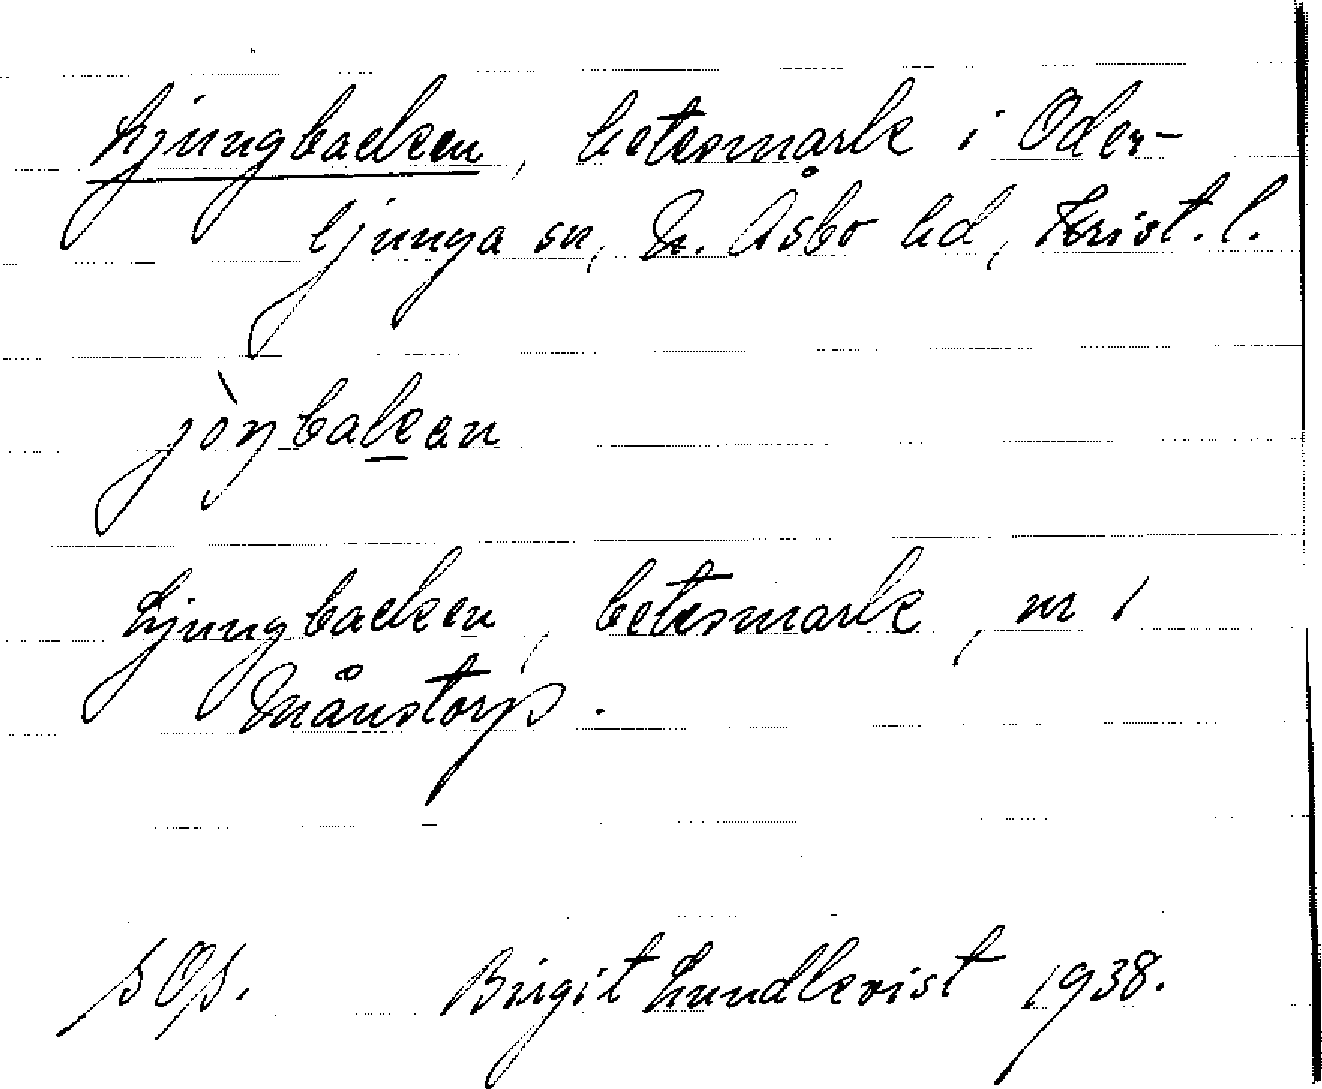 Ljungbacken, betesmark i Oder-
ljunga sn, N. Åsbo hd, Krist. l.
jòŋbakan
Ljungbacken, betesmark, nr 1
Månstorp.
Birgit Lundkvist 1938.